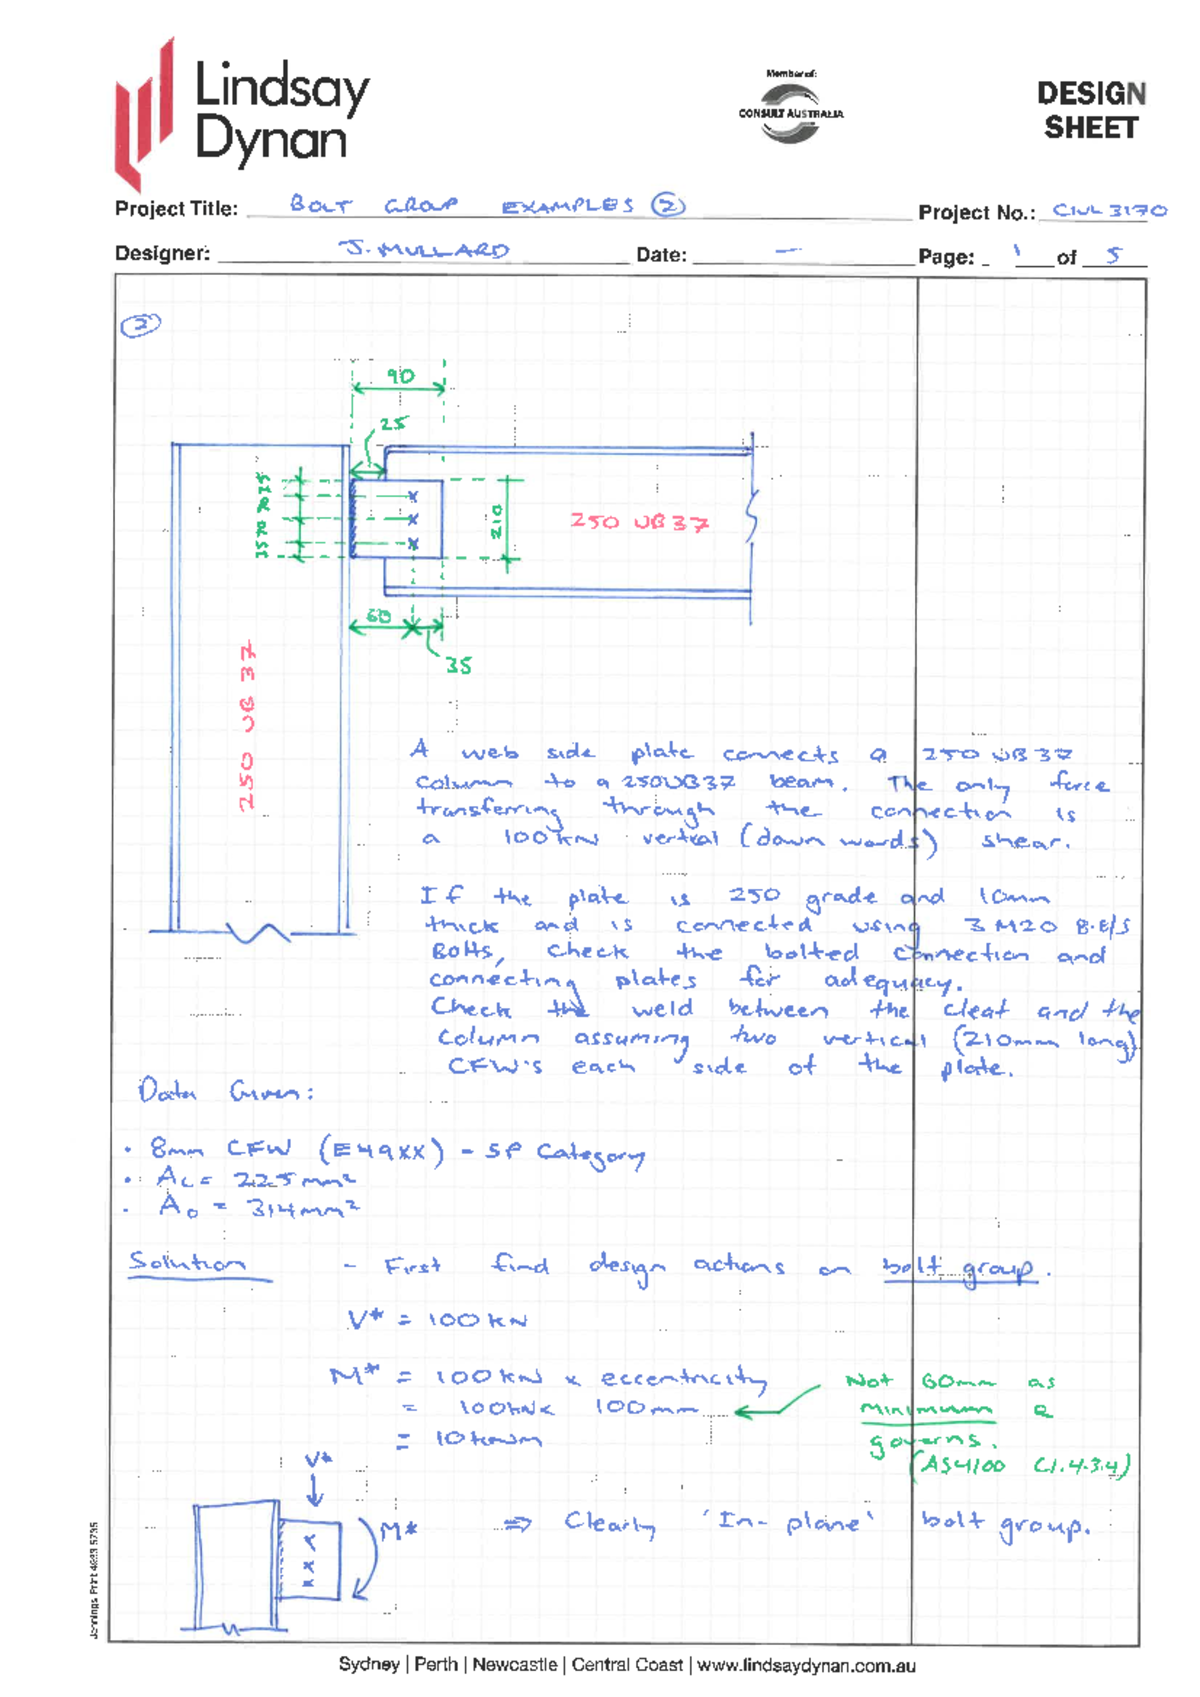 Lindsay
Dynan
Member of:
CONSULT AUSTRALIA
DESIGN
SHEET
Project Title: BOLT GROUP EXAMPLES ②
Project No.: CIVL 3170
Designer: J. MULLARD
Date: —
Page: 1 of 5
②
90
25
35 70 70 35
210
250 UB 37
60
35
250 UB 37
A web side plate connects a 250 UB 37
column to a 250UB37 beam. The only force
transferring through the connection is
a 100kN vertical (down wards) shear.
If the plate is 250 grade and 10mm
thick and is connected using 3 M20 8.8/S
Bolts, check the bolted connection and
connecting plates for adequacy.
Check the weld between the cleat and the
column assuming two vertical (210mm long)
CFW's each side of the plate.
Data Given:
• 8mm CFW (E49XX) - SP Category
• Ac = 225mm²
• Ao = 314mm²
Solution - First find design actions on bolt group.
V* = 100kN
M* = 100kN x eccentricity
= 100kN x 100mm
= 10kNm
Not 60mm as
minimum e
governs.
(AS4100 Cl. 4.3.4)
V*
M*
⇒ Clearly 'In-plane' bolt group.
Jennings Print 4933 5735
Sydney | Perth | Newcastle | Central Coast | www.lindsaydynan.com.au